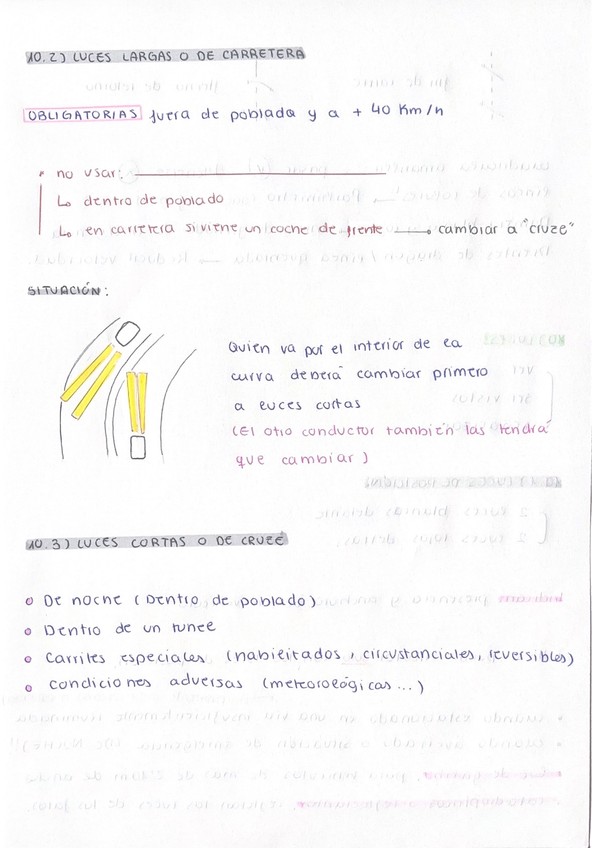 10.2) LUCES LARGAS O DE CARRETERA
OBLIGATORIAS fuera de poblada y a + 40 Km/h
no usar:
↳ dentro de poblado
↳ en carretera si viene un coche de frente → cambiar a "cruze"
SITUACIÓN:
Quien va por el interior de la
curva deberá cambiar primero
a luces cortas
(El otro conductor también las tendrá
que cambiar)
10.3) LUCES CORTAS O DE CRUZE
De noche (Dentro de poblado)
Dentro de un tunel
Carriles especiales (habilitados, circustanciales, reversibles)
condiciones adversas (meteorológicas...)